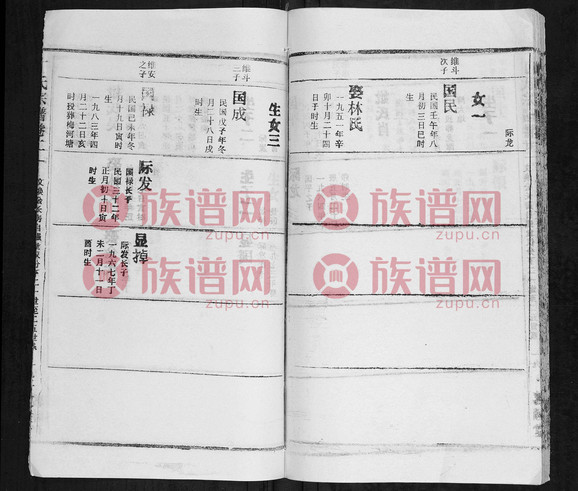 际龙
女一
国民
维斗
次子
民国壬午年八
月初三日巳时
生
娶林氏
一九五一年辛
卯十月二十四
日子时生
生女三
国成
维斗
三子
民国戊子年冬
月二十八日戌
时生
国禄
维安
之子
民国己未年冬
月十九日寅时
生
一九八三年四
月二十二日亥
时投葬梅河塘
际发
国禄长子
民国三十二年
正月初十日寅
时生
显掉
际发长子
一九六七年丁
未二月十一日
酉时生
氏宗谱卷二
族谱网
zupu.cn
族谱网
zupu.cn
族谱网
zupu.cn
族谱网
zupu.cn